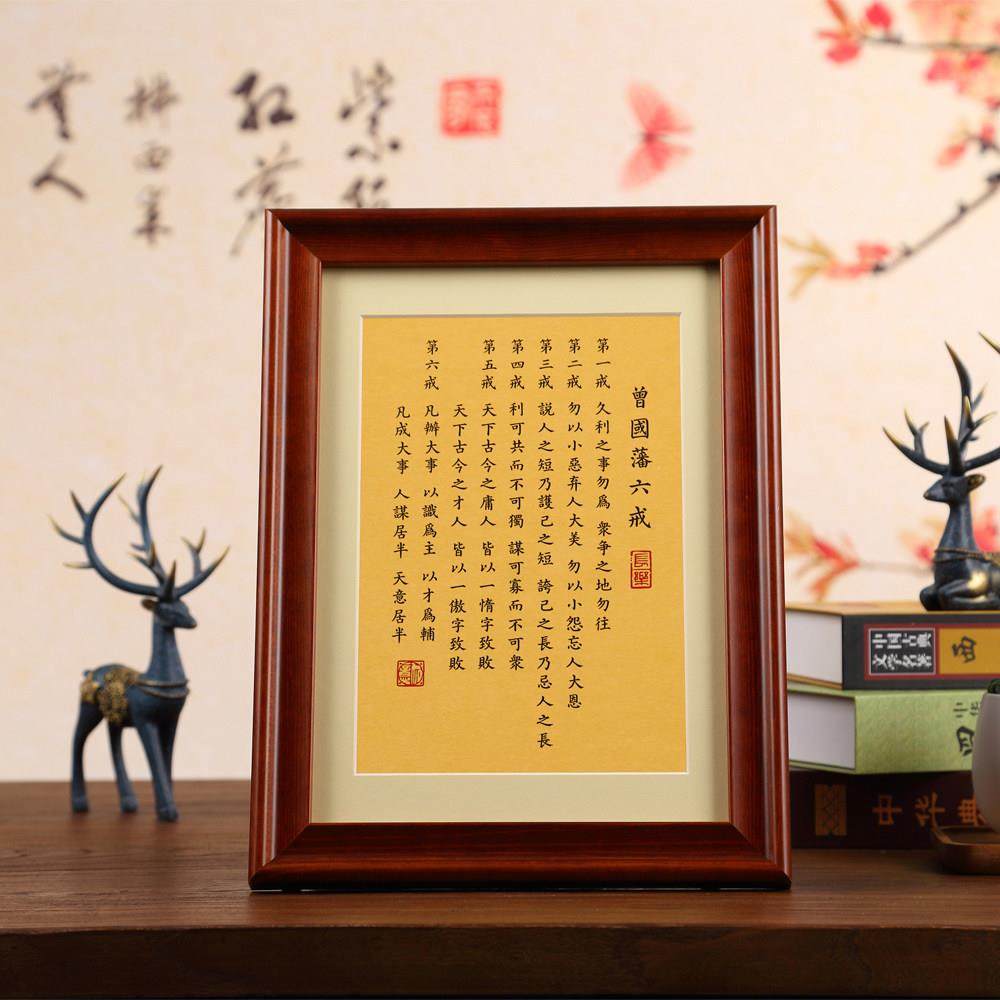 曾國藩六戒
長樂
第一戒 久利之事勿爲 衆争之地勿往
第二戒 勿以小惡弃人大美 勿以小怨忘人大恩
第三戒 説人之短乃護己之短 誇己之長乃忌人之長
第四戒 利可共而不可獨 謀可寡而不可衆
第五戒 天下古今之庸人 皆以一惰字致敗
天下古今之才人 皆以一傲字致敗
第六戒 凡辦大事 以識爲主 以才爲輔
凡成大事 人謀居半 天意居半
中国古典
文学名著
西
中华
四
中华典